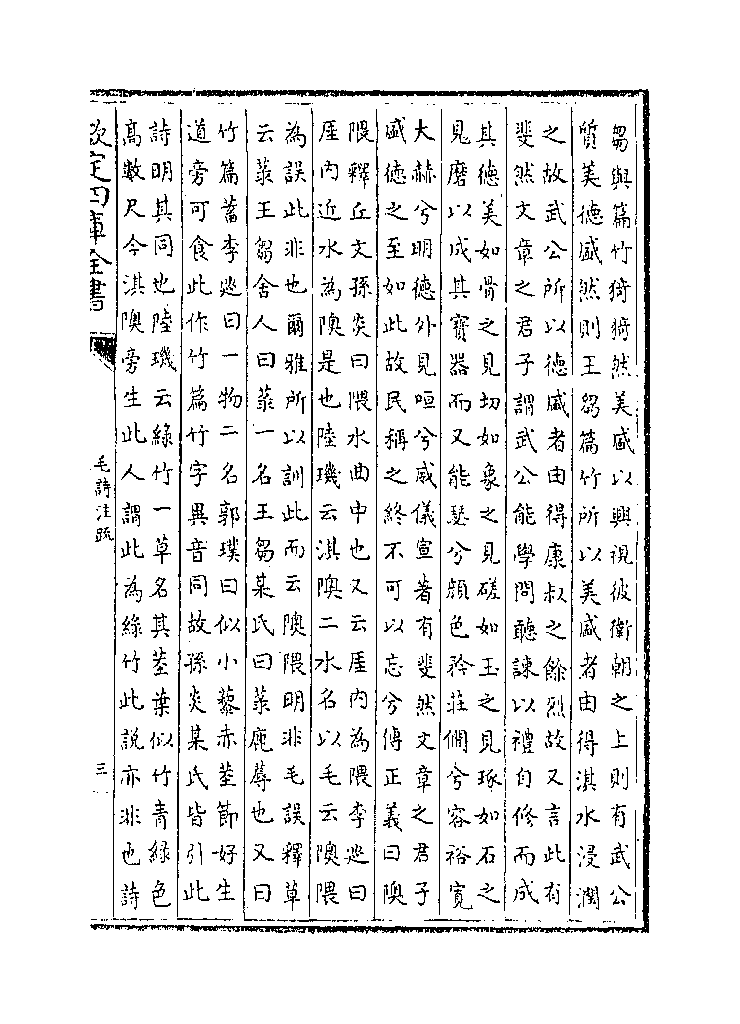 芻與篇竹猗猗然美盛以興視彼衛朝之上則有武公
質美德盛然則王芻篇竹所以美盛者由得淇水浸潤
之故武公所以德盛者由得康叔之餘烈故又言此有
斐然文章之君子謂武公能學問聽諫以禮自修而成
其德美如骨之見切如象之見磋如玉之見琢如石之
見磨以成其寳器而又能瑟兮顔色矜莊僩兮容裕寛
大赫兮明德外見咺兮威儀宣著有斐然文章之君子
盛德之至如此故民稱之終不可以忘兮傳正義曰隩
隈釋丘文孫炎曰隈水曲中也又云厓内為隈李廵曰
厓内近水為隩是也陸璣云淇隩二水名以毛云隩隈
為誤此非也爾雅所以訓此而云隩隈明非毛誤釋草
云菉王芻舍人曰菉一名王芻某氏曰菉鹿蓐也又曰
竹篇蓄李廵曰一物二名郭璞曰似小藜赤莖節好生
道旁可食此作竹篇竹字異音同故孫炎某氏皆引此
詩明其同也陸璣云綠竹一草名其莖葉似竹青綠色
髙數尺今淇隩旁生此人謂此為綠竹此說亦非也詩
欽定四庫全書
毛詩注疏
三